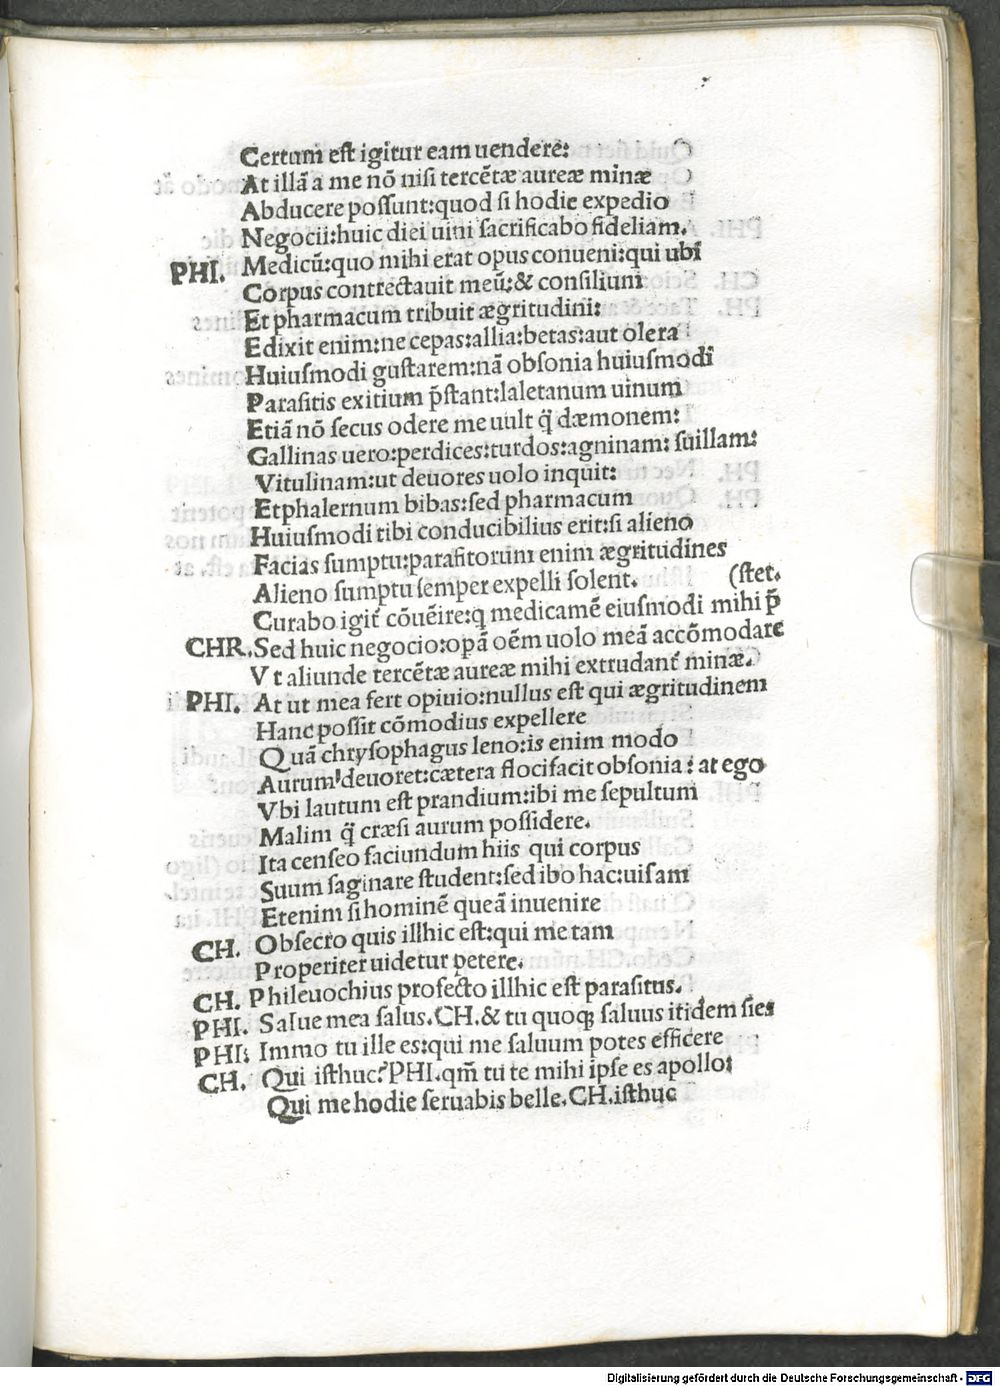 Certum est igitur eam uendere:
At illã a me nõ nisi tercẽtæ aureæ minæ
Abducere possunt:quod si hodie expedio
Negocii:huic diei uini sacrificabo fideliam.
PHI. Medicũ:quo mihi erat opus conueni:qui ubi
Corpus contrectauit meũ:& consilium
Et pharmacum tribuit ægritudini:
Edixit enim:ne cepas:allia:betas:aut olera
Huiusmodi gustarem:nã obsonia huiusmodi
Parasitis exitium p̄stant:laletanum uinum
Etiã nõ secus odere me uult q̃ dæmonem:
Gallinas uero:perdices:turdos:agninam: suillam:
Vitulinam:ut deuores uolo inquit:
Etphalernum bibas:sed pharmacum
Huiusmodi tibi conducibilius erit:si alieno
Facias sumptu:parasitorum enim ægritudines
Alieno sumptu semper expelli solent. (stet.
Curabo igit̃ cõuẽire:q medicamẽ eiusmodi mihi p̄
CHR. Sed huic negocio:opã oẽm uolo meã accõmodare
Vt aliunde tercẽtæ aureæ mihi extrudant̃ minæ.
PHI. At ut mea fert opiuio:nullus est qui ægritudinem
Hanc possit cõmodius expellere
Quã chrysophagus leno:is enim modo
Aurum deuoret:cætera flocifacit obsonia: at ego
Vbi lautum est prandium:ibi me sepultum
Malim q̃ cræsi aurum possidere.
Ita censeo faciundum hiis qui corpus
Suum saginare student:sed ibo hac:uisam
Etenim si hominẽ queã inuenire
CH. Obsecro quis illhic est:qui me tam
Properiter uidetur petere.
CH. Phileuochius profecto illhic est parasitus.
PHI. Salue mea salus.CH.& tu quoq; saluus itidem sies
PHI: Immo tu ille es:qui me saluum potes efficere
CH. Qui isthuc?PHI.qm̃ tu te mihi ipse es apollo:
Qui me hodie seruabis belle.CH.isthuc
Digitalisierung gefördert durch die Deutsche Forschungsgemeinschaft - DFG